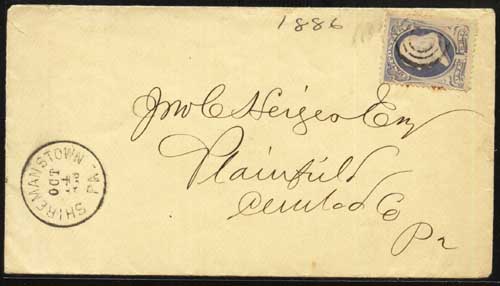 1886
Jno C Heiges Esq
Plainfield
Cumb'd Co
Pa
SHIREMANSTOWN PA.
OCT
4